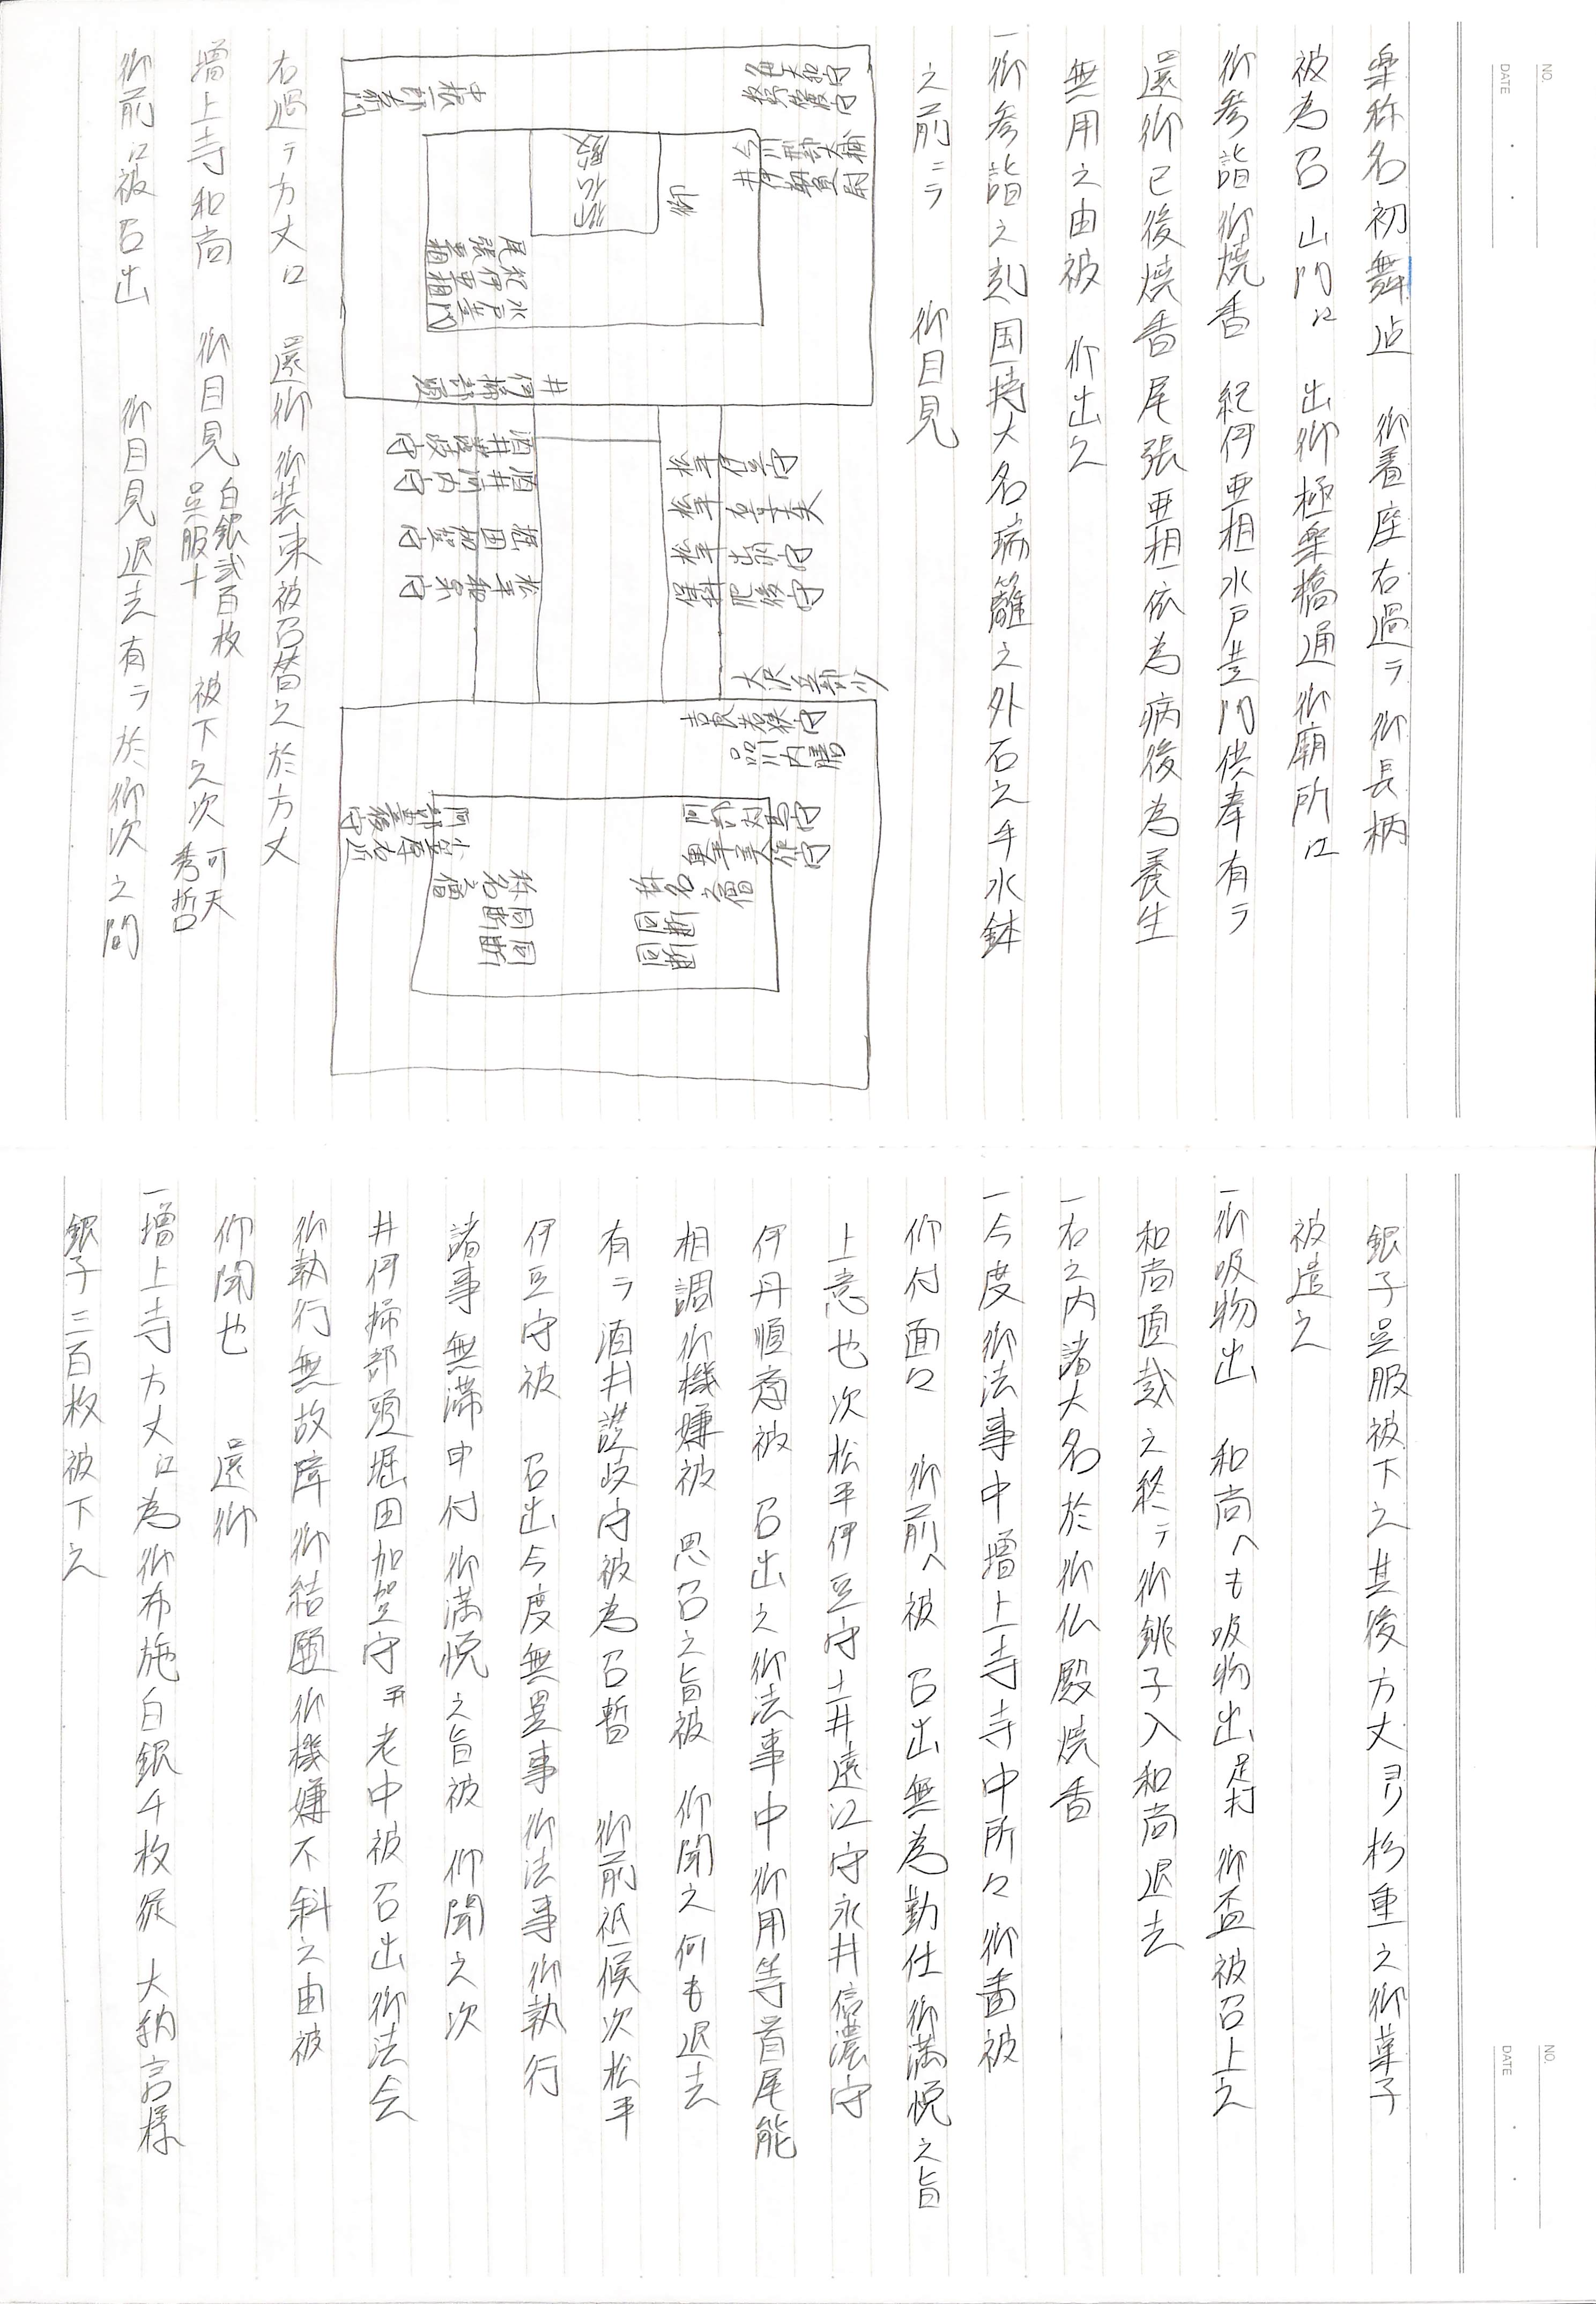 NO.
DATE
楽称名初舞迄　御着座右過ラ御長柄
被為召山門江　出御極楽橋通御廟所江
御参詣御焼香　紀伊亜相水戸黄門供奉有ラ
還御已後焼香尾張亜相依為病後為養生
無用之由被　仰出之
一御参詣之刻国持大名瑞籬之外石之手水鉢
之前ニラ　御目見
御仏殿
尾張亜相
紀伊亜相
水戸黄門
井伊掃部頭
酒井讃岐守
酒井河内守
堀田加賀守
品川内膳
阿部対馬守
阿部豊後守
右過テ方丈江　還御御装束被召替之於方丈
増上寺和尚　御目見 白銀弐百枚 呉服十 被下之次 可天 秀哲
御前江被召出　御目見退去有ラ於御次之間
NO.
DATE
銀子呉服被下之其後方丈ヨリ杉重之御菓子
被進之
一御吸物出　和尚へも吸物出 足打 御盃被召上之
和尚頂戴之終テ御銚子入和尚退去
一右之内諸大名於御仏殿焼香
一今度御法事中増上寺寺中所々御番被
仰付面々　御前へ被　召出無為勤仕御満悦之旨
上意也次松平伊豆守土井遠江守永井信濃守
伊丹順斎被　召出之御法事中御用等首尾能
相調御機嫌被　思召之旨被　仰聞之何も退去
有ラ酒井讃岐守被為召暫　御前祗候次松平
伊豆守被　召出今度無異事御法事御執行
諸事無滞申付御満悦之旨被　仰聞之次
井伊掃部頭堀田加賀守并老中被召出御法会
御執行無故障御結願御機嫌不斜之由被
仰聞也　還御
一増上寺方丈江為御布施白銀千枚従　大納言様
銀子三百枚被下之